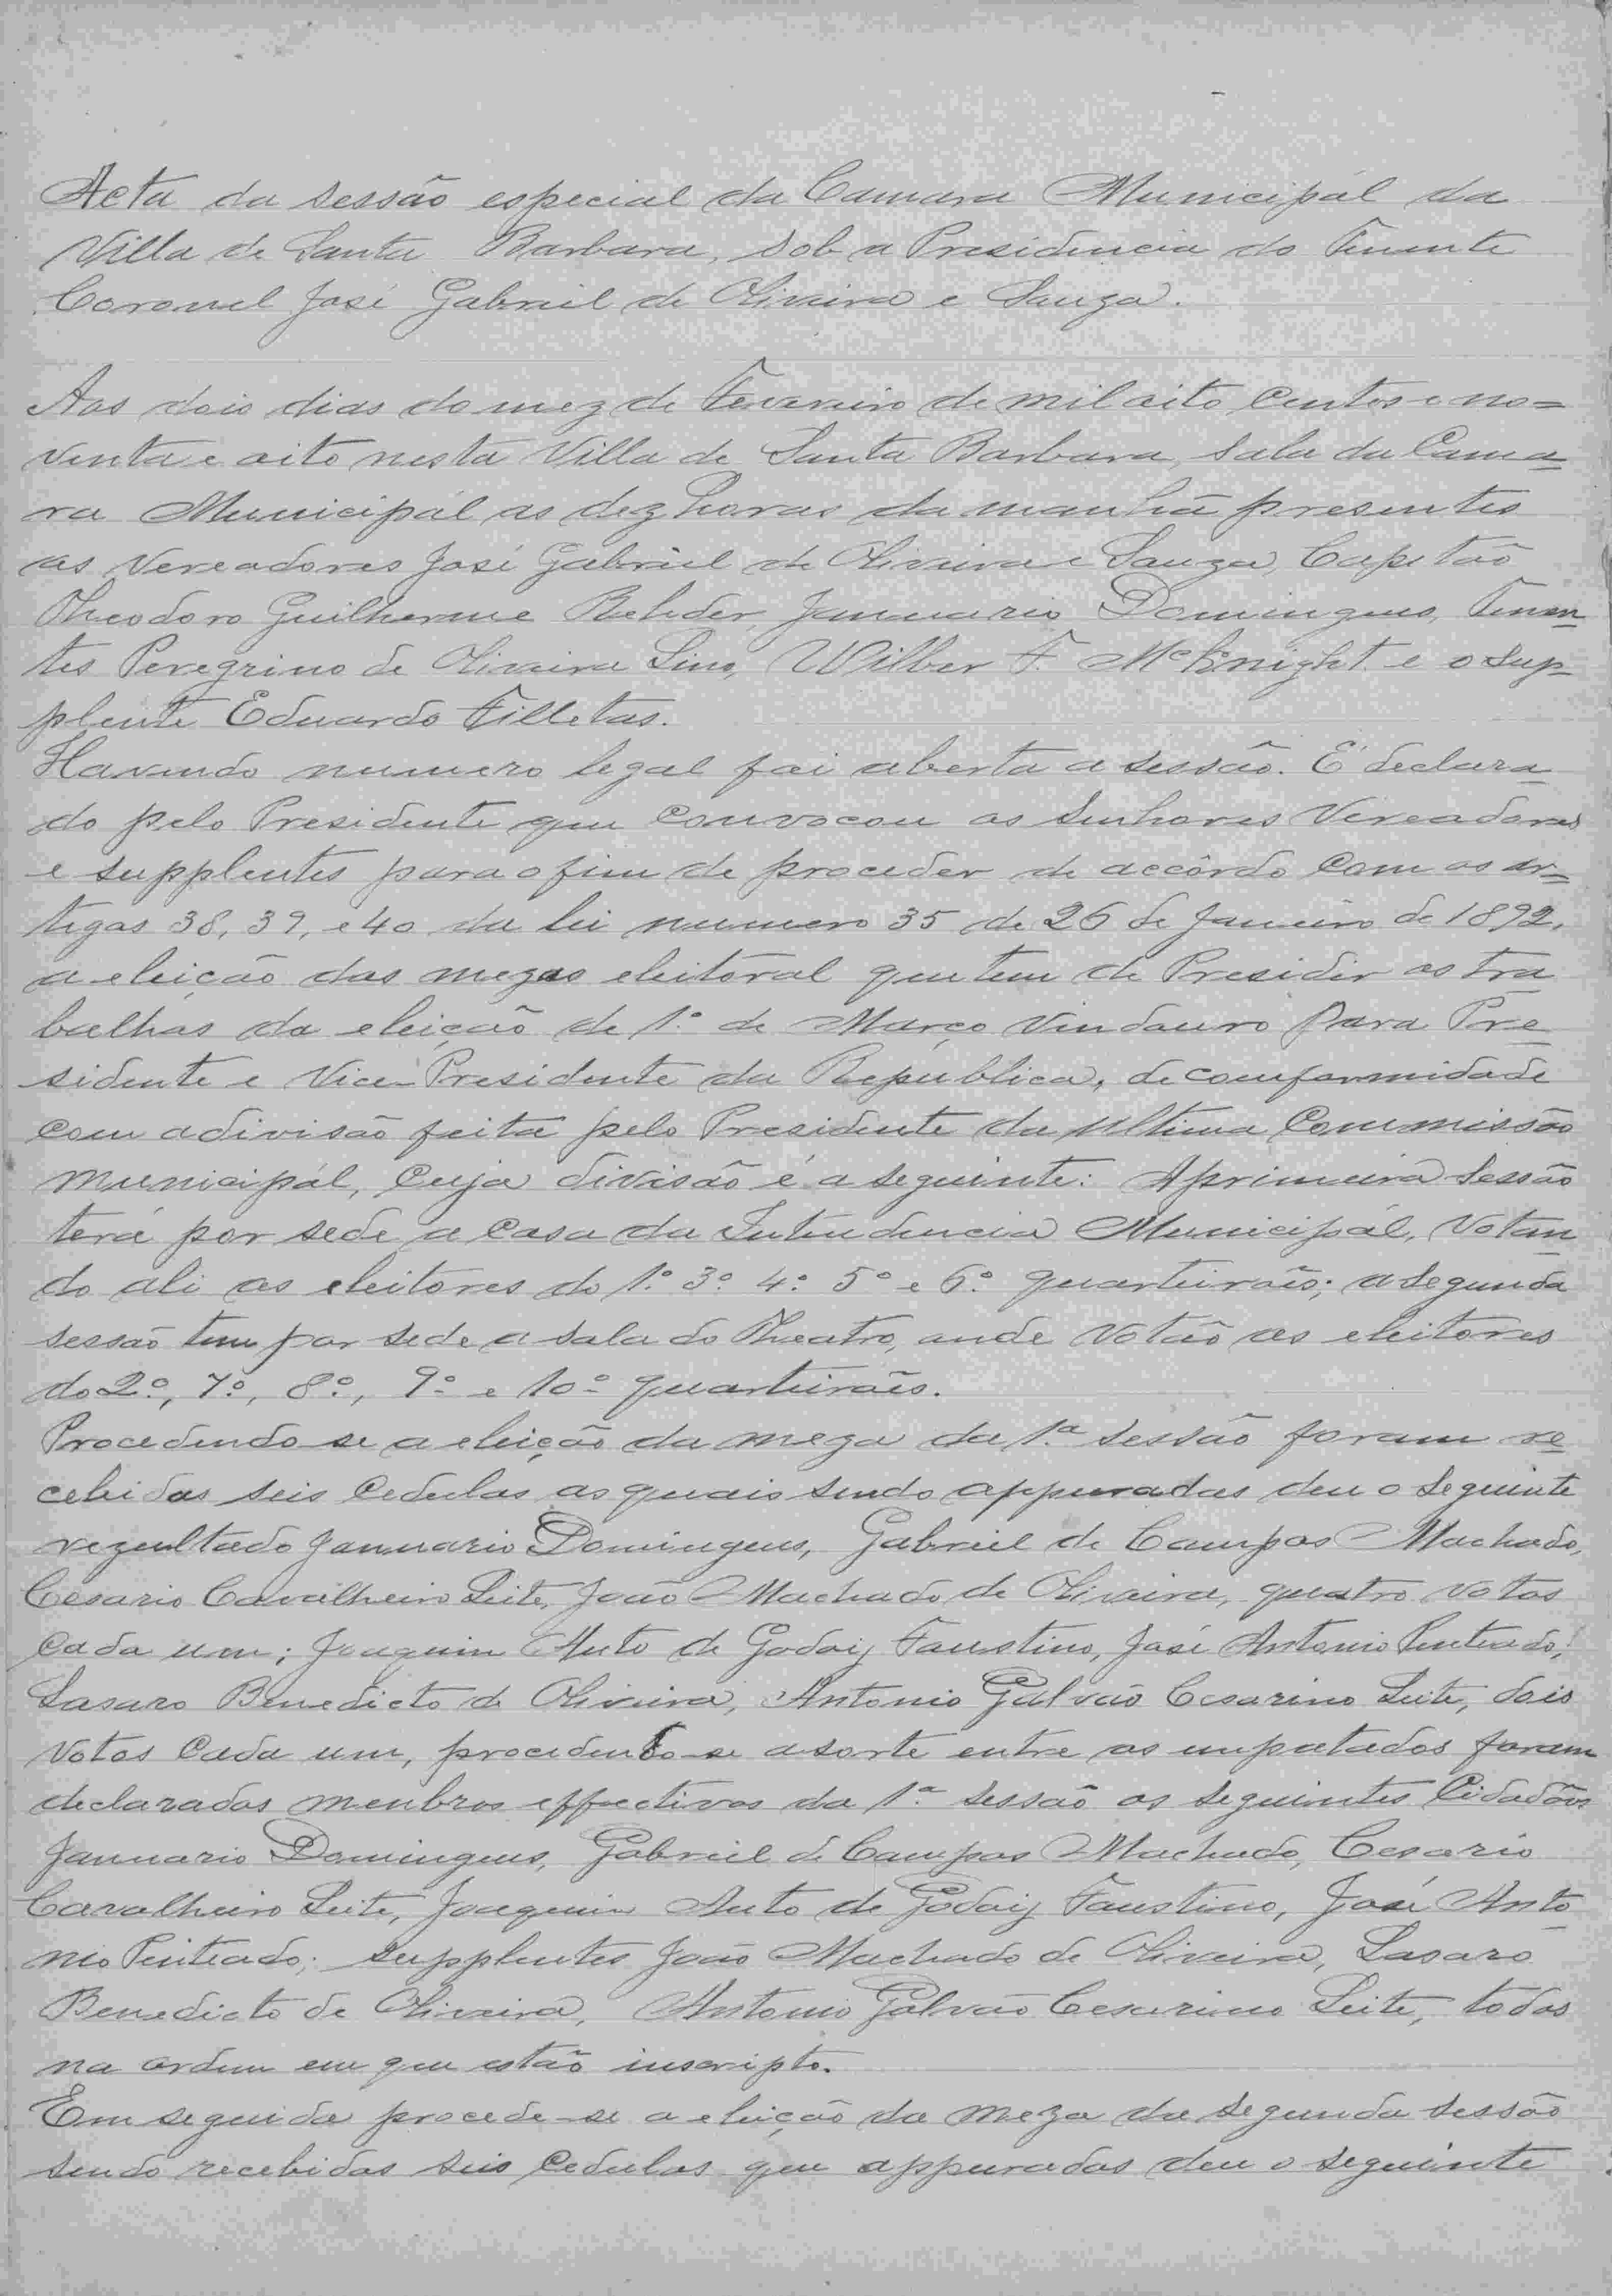 Acta da sessão especial da Camara Municipal da
Villa de Santa Barbara, sob a Presidencia do Tenente
Coronel José Gabriel de Oliveira e Souza.
Aos dois dias do mez de Fevereiro de mil oito centos e no=
venta e oito nesta Villa de Santa Barbara, sala da Cama
ra Municipal as dez horas da manhã presentes
os Vereadores José Gabriel de Oliveira e Souza, Capitão
Theodoro Guilherme Rehder, Januario Domingues, Tenen
tes Peregrino de Oliveira Lino, Wilber F. McKnight e o sup
plente Eduardo Filletas.
Havendo numero legal foi aberta a sessão. É declara
do pelo Presidente que convocou os senhores Vereadores
e supplentes para o fim de proceder de accôrdo com os ar=
tigos 38, 39, e 40 da lei numero 35 de 26 de Janeiro de 1892,
a eleição das mezas eleitoral que tem de Presidir os tra
balhos da eleição de 1º de Março vindouro para Pre
sidente e Vice-Presidente da Republica, de comformidade
com a divisão feita pelo Presidente da ultima Commissão
municipal, cuja divisão é a seguinte: A primeira sessão
terá por sede a casa da Intendencia Municipal, votan
do ali os eleitores do 1º 3º 4º 5º e 6º quarteirões; a segunda
sessão tem por sede a sala do Theatro, onde votão os eleitores
do 2º, 7º, 8º, 9º e 10º quarteirões.
Procedendo-se a eleição da meza da 1ª sessão foram re
cebidas seis cedulas as quais sendo appuradas deu o seguinte
rezultado Januario Domingues, Gabriel de Campos Machado,
Cesario Cavalheiro Leite, João Machado de Oliveira, quatro votos
cada um; Joaquim Auto de Godoiy Faustino, José Antonio Penteado,
Lasaro Benedicto de Oliveira, Antonio Galvão Cesarino Leite, dois
votos cada um, procedendo-se a sorte entre os empatados foram
declarados menbros effectivos da 1ª sessão os seguintes Cidadãos
Januario Domingues, Gabriel de Campos Machado, Cesario
Cavalheiro Leite, Joaquim Auto de Godoiy Faustino, José Anto
nio Penteado; supplentes João Machado de Oliveira, Lasaro
Benedicto de Oliveira, Antonio Galvão Cesarino Leite, todos
na ordem em que estão inscripto.
Em seguida procede-se a eleição da meza da segunda sessão
sendo recebidas seis cedulas que appuradas deu o seguinte